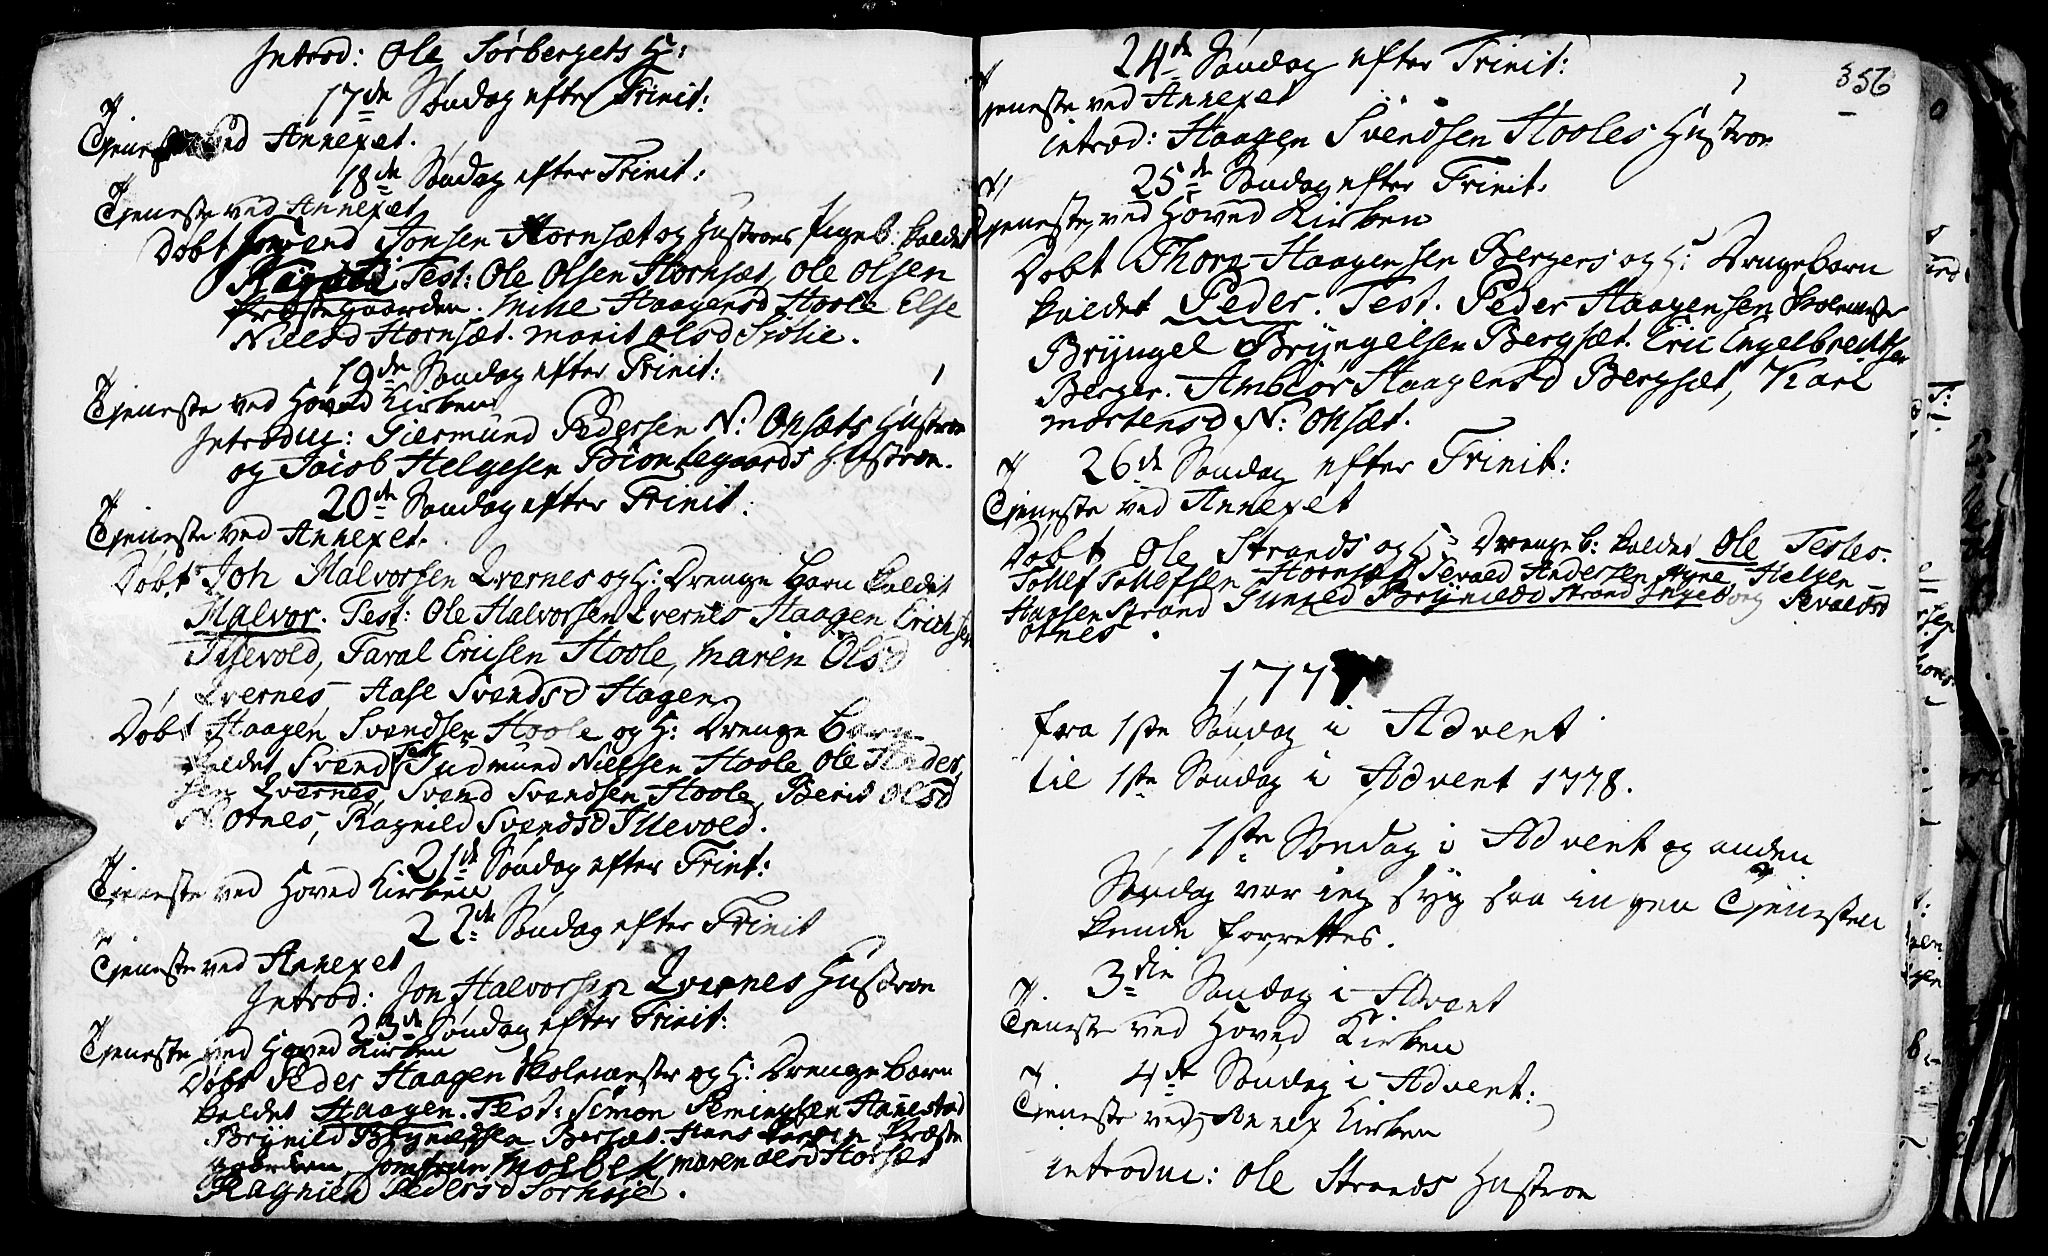 Introd: Ole Sørbergets H:
17de Søndag efter Trinit:
Tjeneste ved Annexet.
18de Søndag efter Trinit:
Tjeneste ved Annexet
Døbt Jonsen Hornsæt og Hustroes Pigeb: kaldet
Test: Ole Olsen Hornsæt, Ole Olsen
Præstegaarden. Mille Haagensd Hoole Else
Nielsd Hornsæt. Marit Olsd Siølie.
19de Søndag efter Trinit:
Tjeneste ved Hoved Kirken
Introduc: Giermund Pedersen N: Onsæts Hustroe
og Jacob Helgesen Biontegaards Hustroe.
20de Søndag efter Trinit:
Tjeneste ved Annexet.
Døbt Joh Halvorsen Qvernes og H: Drenge Barn kaldet
Halvor. Test: Ole Halvorsen Qvernes Haagen Erichsen
Illevold, Taral Ericsen Hoole, Maren Olsd
Qvernes, Aase Svendsd Hagen
Døbt Haagen Svendsen Hoole og H: Drenge Barn
kaldet Svend Test Gudmund Nielsen Hoole, Ole Halvor
sen Qvernes, Svend Svendsen Hoole, Berit Olsd
N Otnes, Ragnild Svendsd Illevold.
21de Søndag efter Trint:
Tjeneste ved Hoved Kirken
22de Søndag efter Trinit
Tjeneste ved Annexet
Introd: Jon Halvorsen Qvernes Hustroe
23de Søndag efter Trinit:
Tjeneste ved Hoved Kirken
Døbt Peder Haagen Skolemester og H: Drenge Barn
kaldet Haagen. Test: Simon Semingsen Hanestad
Brynild Berset. Hans Præste
gaarden, Jomfrue Moebek Maren Olsd Hornsæt
Ragnild Pedersd Sørhøje.
356
24de Søndag efter Trinit:
Tjeneste ved Annexet
introd: Haagen Svendsen Hooles Hustroe
25de Søndag efter Trinit.
Tjeneste ved Hoved Kirken
Døbt Thore Haagensen Bergers og H: Drengebarn
kaldet Peder. Test. Peder Haagensen Skolemester
Bryngel Bryngelsen Bergsæt. Eric Engelbrechtsen
Berger. Ambior Haagensd Bergset, Kari
Mortensd N: Onsæt.
26de Søndag efter Trinit:
Tjeneste ved Annexet
Døbt Ole Strands og H: Drengeb: kaldet Ole Testes.
Tollef Tollefsen Hornsæt Sevald Andersen Helgen
Hansen Strand Gunild Brynildsd Strand Ingeborg Sevaldsd
Otnes.
1777
fra 1ste Søndag i Advent
til 1ste Søndag i Advent 1778.
1ste Søndag i Advent og anden
Søndag var jeg syg saa ingen Tjenesten
kunde forrettes.
3die Søndag i Advent
Tjeneste ved Hoved Kirken
4de Søndag i Advent:
Tjeneste ved Annex Kirken
introduc: Ole Strands Hustroe